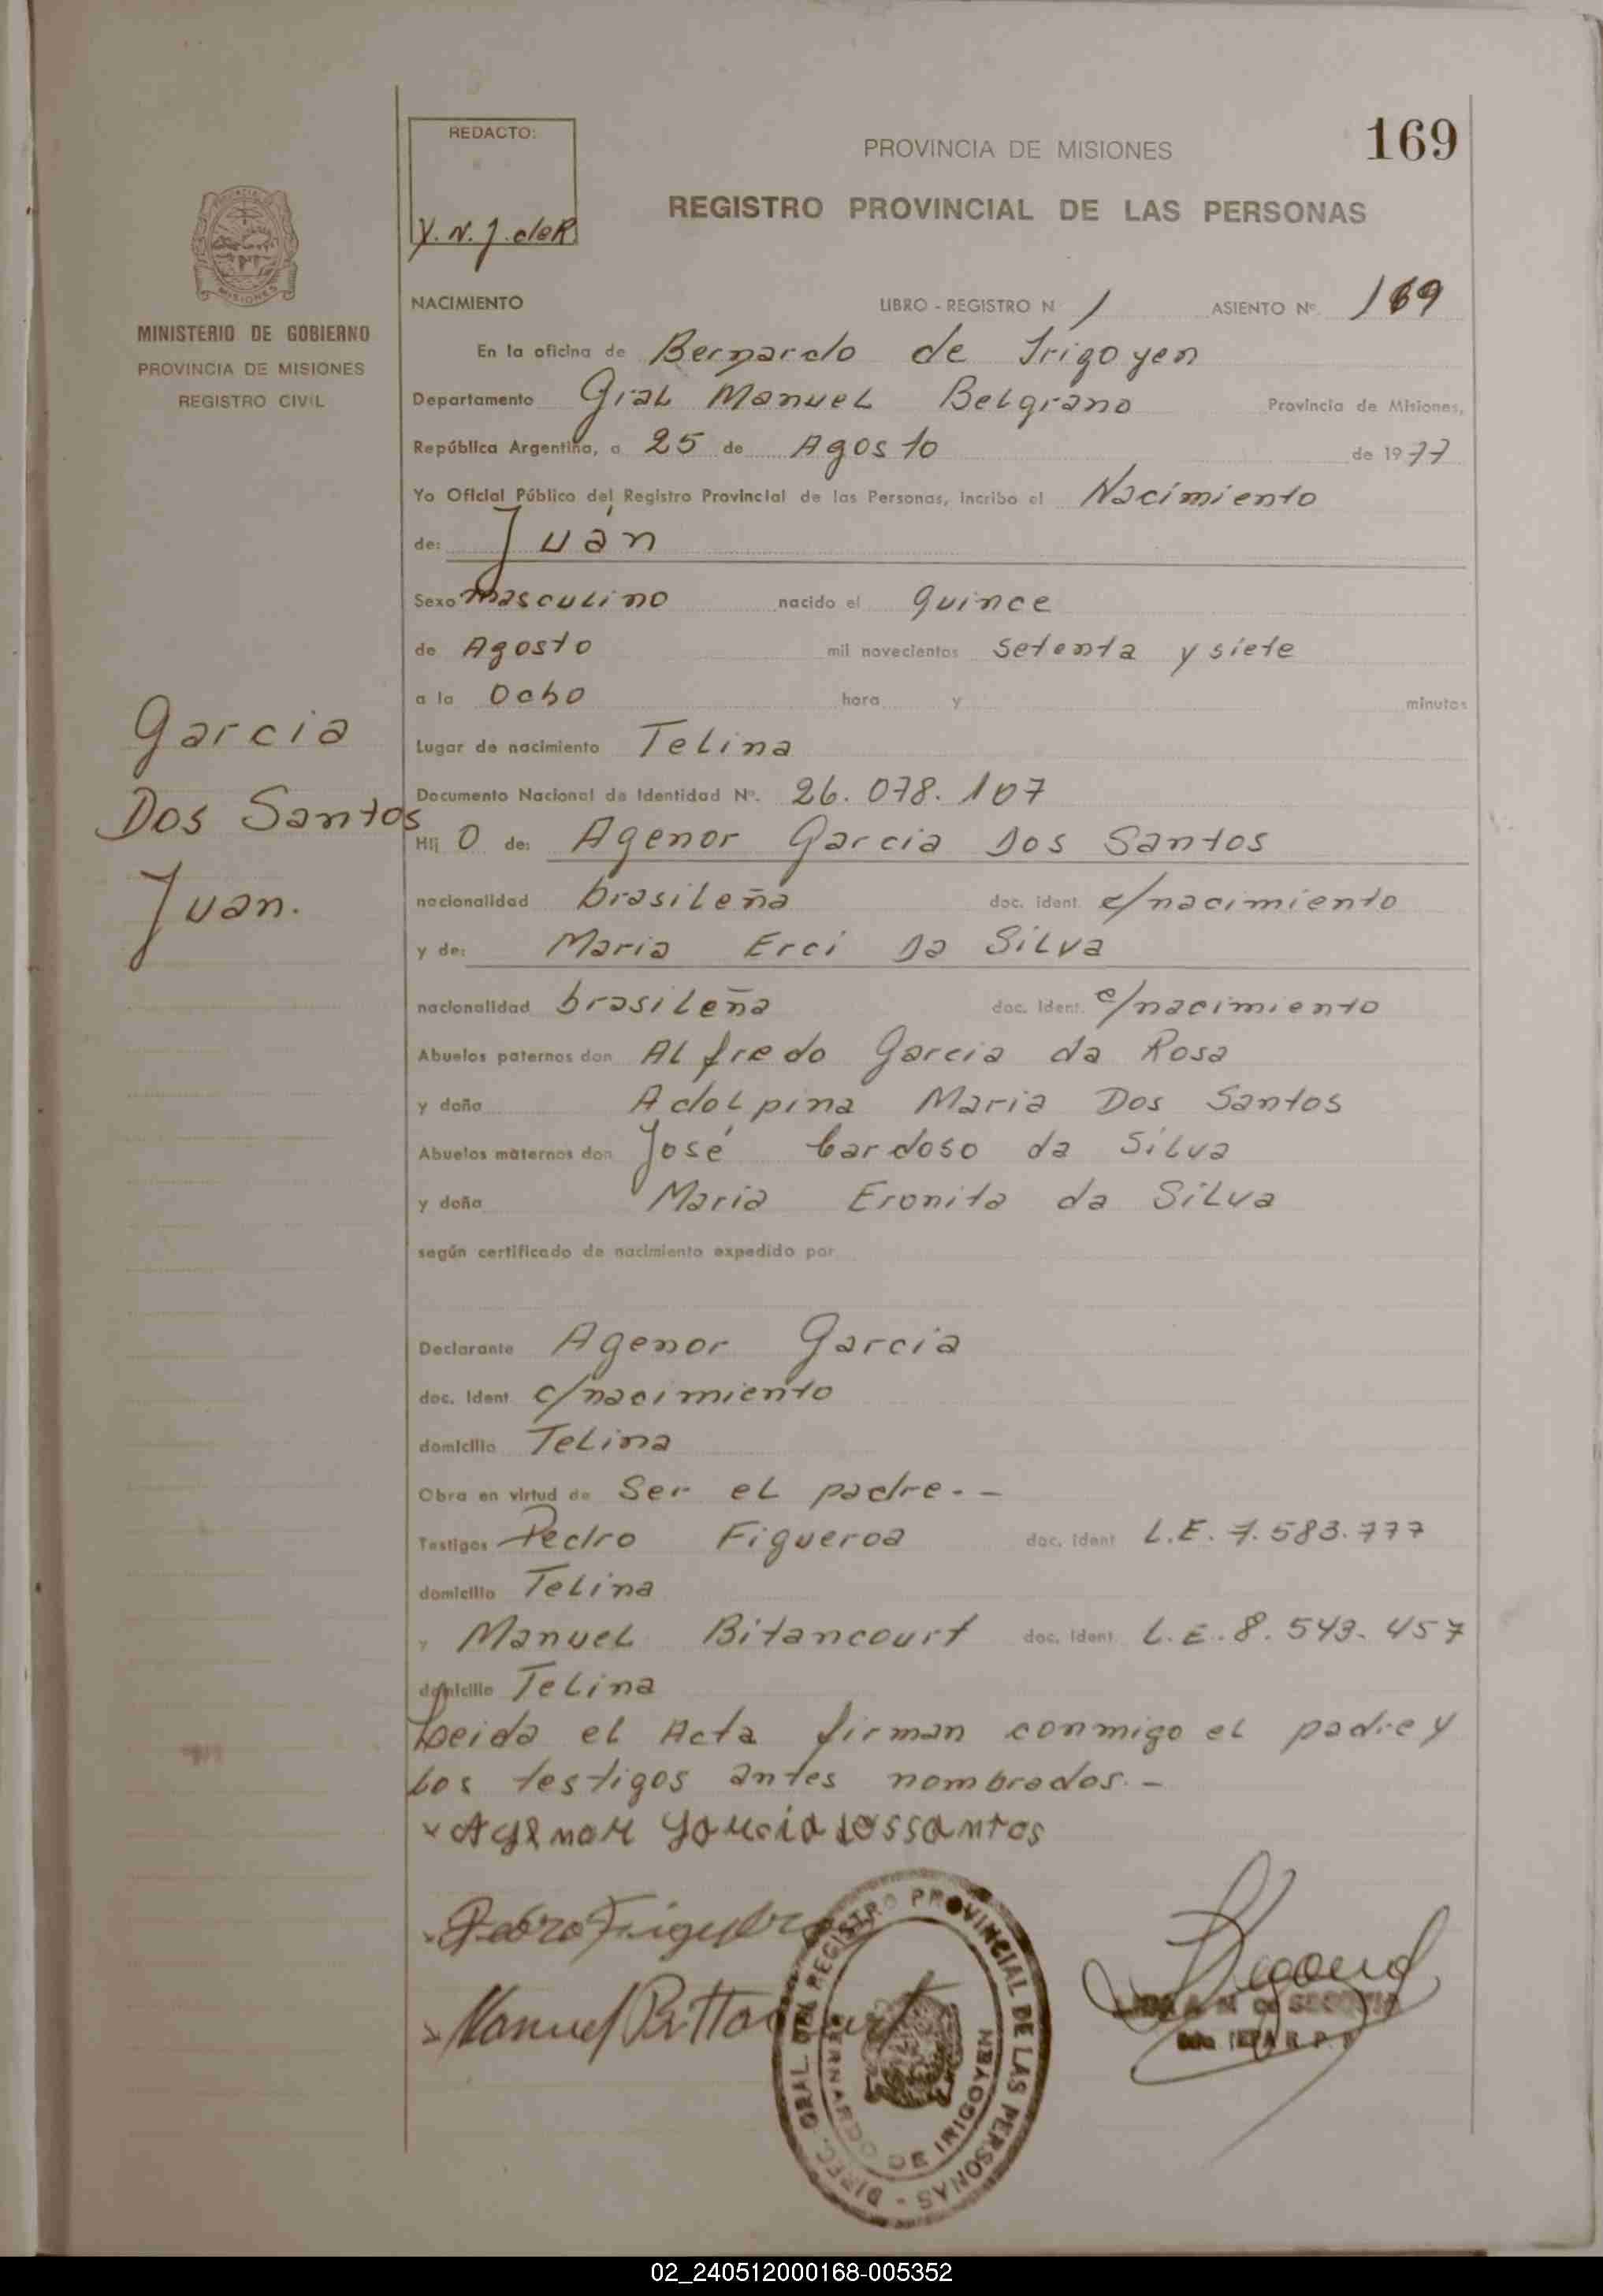 169
REDACTO:
Y. N. J. de R.
PROVINCIA DE MISIONES
REGISTRO PROVINCIAL DE LAS PERSONAS
MISIONES
MINISTERIO DE GOBIERNO
PROVINCIA DE MISIONES
REGISTRO CIVIL
NACIMIENTO LIBRO - REGISTRO N 1 ASIENTO Nº 169
En la oficina de Bernardo de Irigoyen
Departamento Gral Manuel Belgrano Provincia de Misiones,
República Argentina, a 25 de Agosto de 1977
Yo Oficial Público del Registro Provincial de las Personas, incribo el Nacimiento
de: Juan
Sexo masculino nacido el quince
de Agosto mil novecientos setenta y siete
a la Ocho hora y minutos
Lugar de nacimiento Telina
Documento Nacional de Identidad Nº. 26.078.107
Garcia
Dos Santos
Juan.
Hij o de: Agenor Garcia Dos Santos
nacionalidad brasileña doc. ident. c/nacimiento
y de: Maria Erci Da Silva
nacionalidad brasileña doc. ident. c/nacimiento
Abuelos paternos don Alfredo Garcia da Rosa
y doña Adolpina Maria Dos Santos
Abuelos maternos don José Cardoso da Silva
y doña Maria Eronita da Silva
según certificado de nacimiento expedido por
Declarante Agenor Garcia
doc. ident c/nacimiento
domicilio Telina
Obra en virtud de Ser el padre. -
Testigos Pedro Figueroa doc. ident L.E. 7.583.777
domicilio Telina
y Manuel Bitancourt doc. ident. L.E. 8.543.457
domicilio Telina
Leida el Acta firman conmigo el padre y
los testigos antes nombrados. -
x Agenor Garcia dossantos
Pedro Figueroa
Manuel Bittancourt
DIREC. GRAL. DEL REGISTRO PROVINCIAL DE LAS PERSONAS -
BERNARDO DE IRIGOYEN
02_240512000168-005352